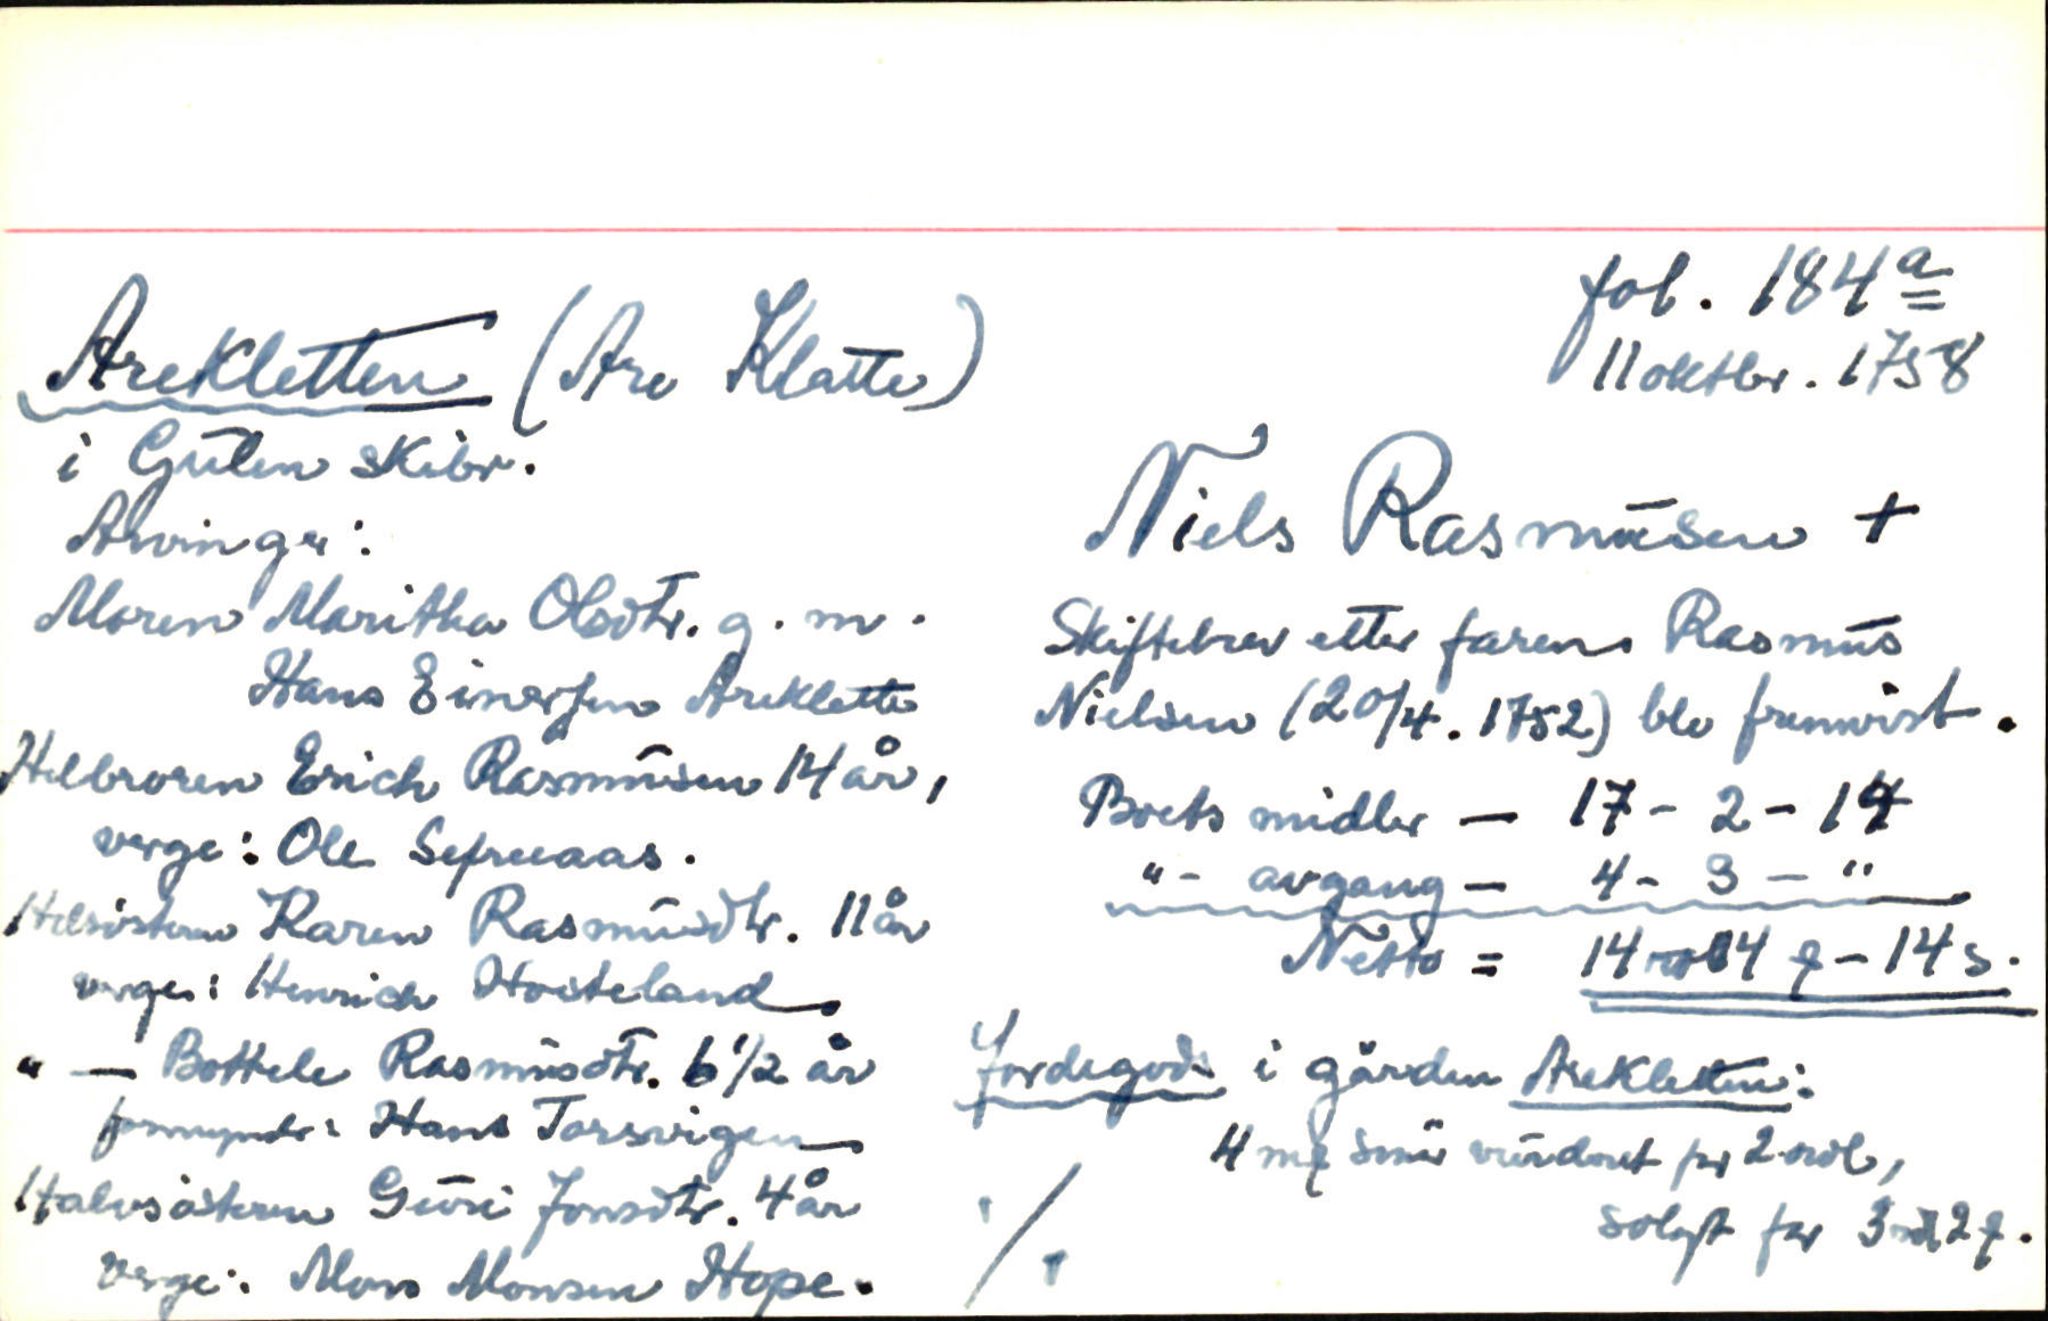 fol. 184 a
11 oktbr. 1758
Arekletten (Are Klatte)
i Gulen skibr.
Arvinger:
Moren Maritha Olsdtr. g. m.
Hans Einersen Areklette
Helbroren Erich Rasmusen 14 år,
verge: Ole
Helsøsteren Karen Rasmusdtr. 11 år
verge: Henrich Hosteland
" — Bottele Rasmusdtr. 6 1/2 år
formynder: Hans Torsvigen
Halvsøsteren Guri Jonsdtr. 4 år
Verge: Mons Monsen Hope.
Niels Rasmusen +
Skiftebrev etter faren Rasmus
Nielsen (20/4. 1752) ble fremvist.
Boets midler — 17 - 2 - 14
" - avgang — 4 - 3 - "
Netto = 14 4 - 14 s.
Jordegods i gården Arekletten:
4 mk smør vurderet for 2 rdl,
solgt for 3 rdl 2
./.